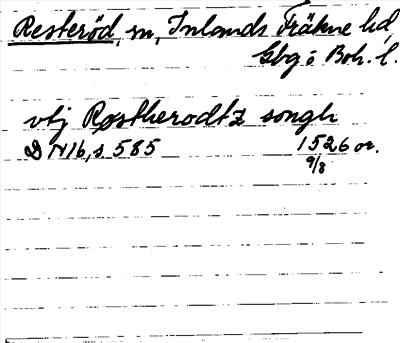 Resteröd, sn, Inlands Fräkne hd,
Gbg o Boh. l.
vtj Røstherodtz songh
D N 16, s. 585 1526 or.
9/8